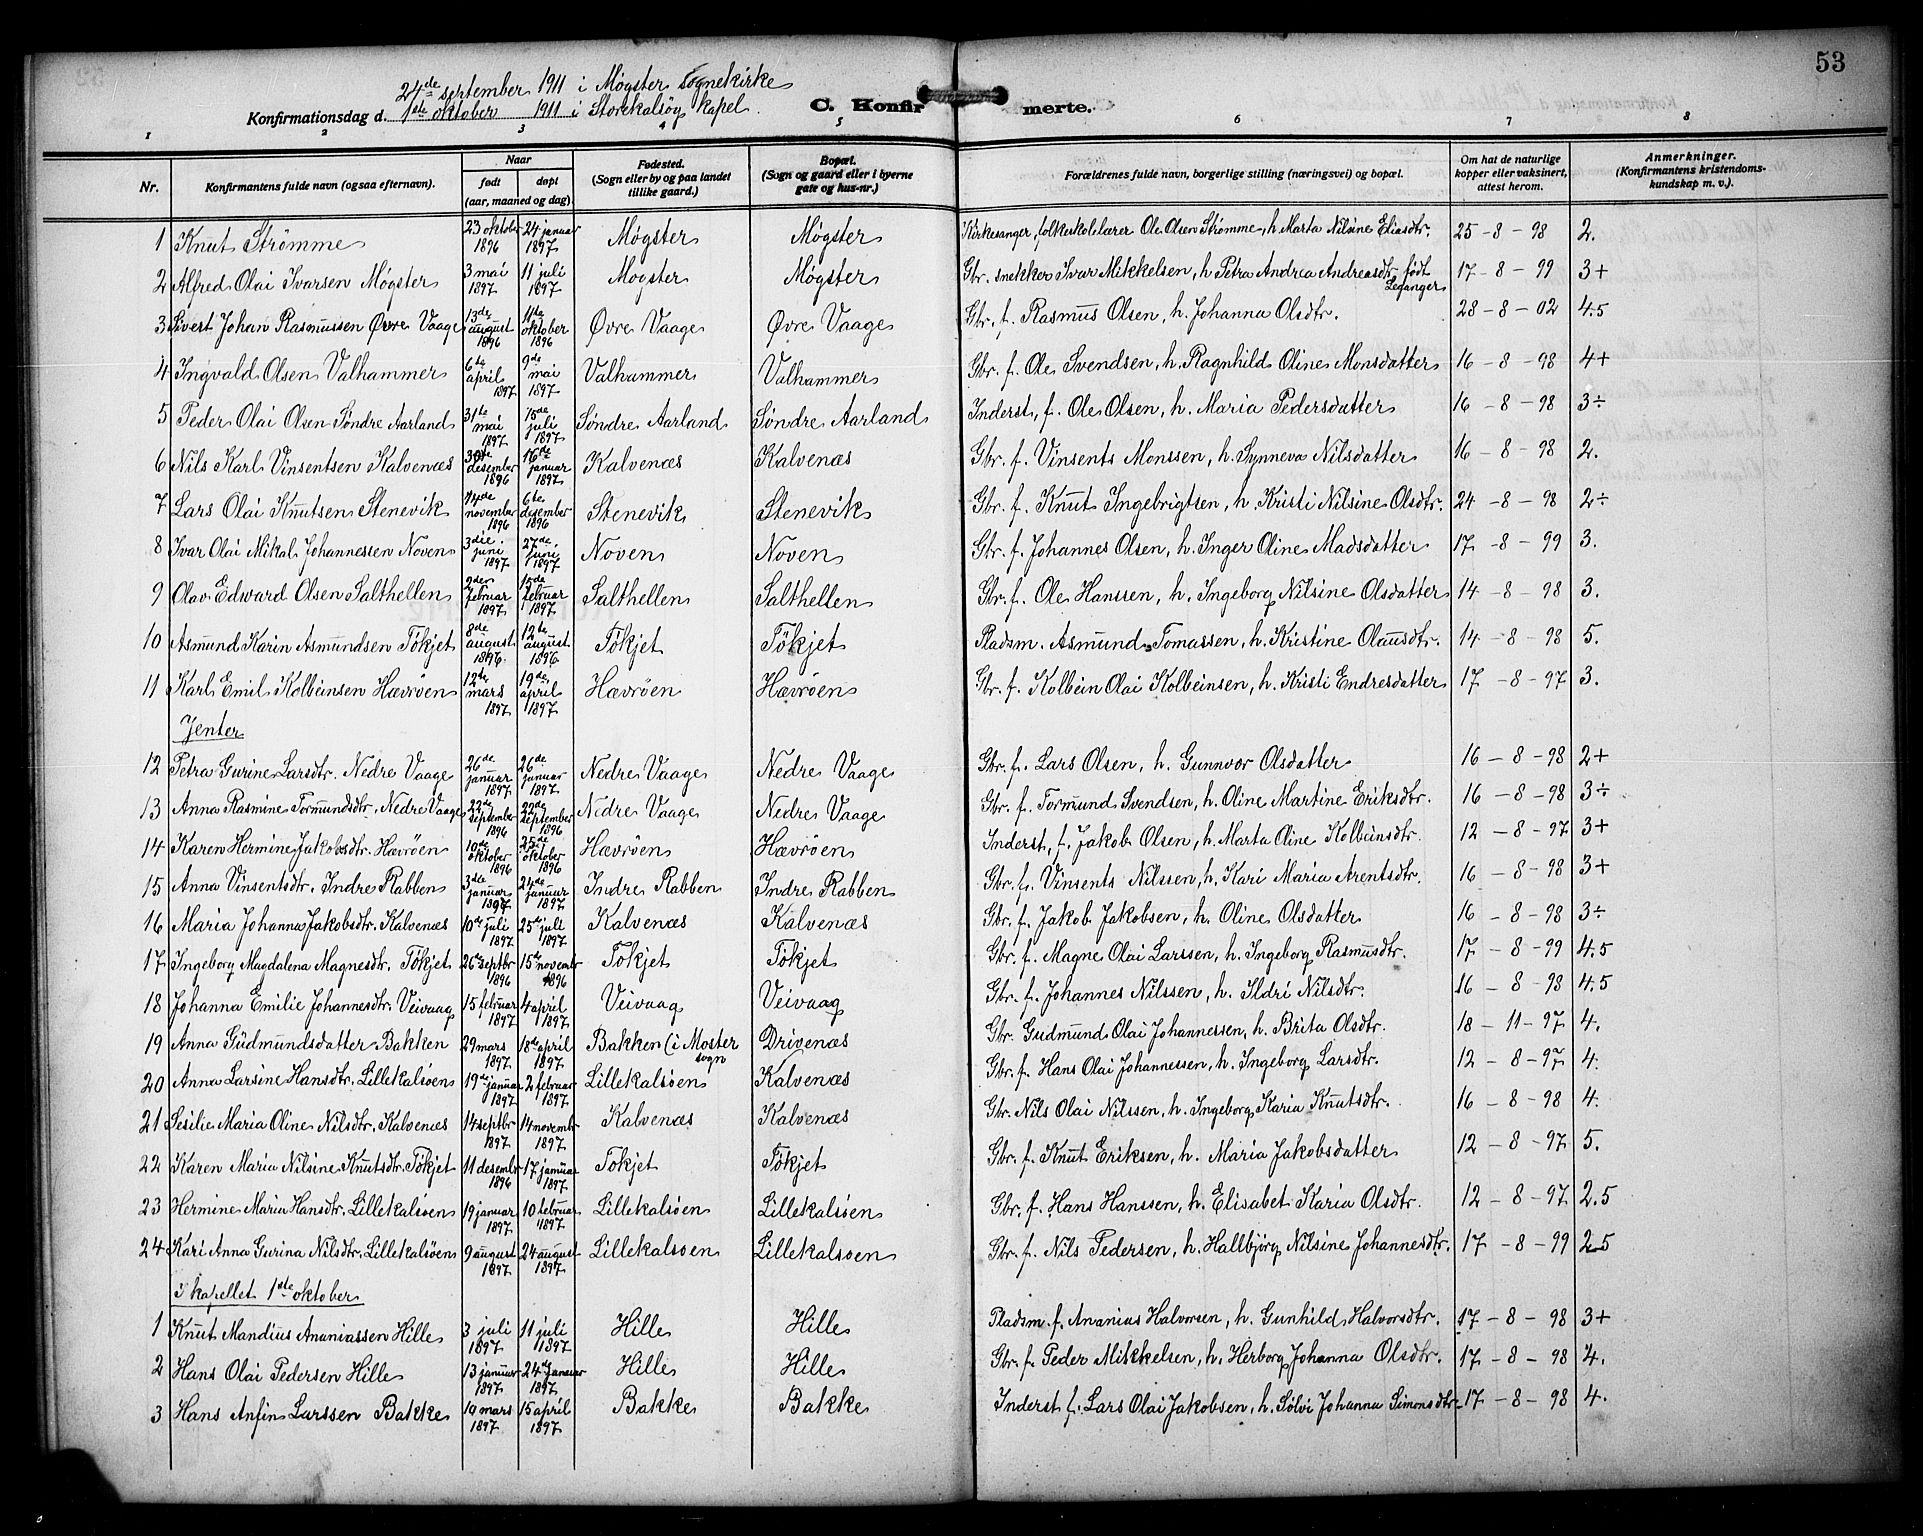 53
24de september 1911 i Møgster sognekirke
Konfirmationsdag d. 1ste oktober 1911 i Storekalsøy kapel.
C. Konfirmerte.
1 2 3 4 5 6 7 8
Nr. Konfirmantens fulde navn (ogsaa efternavn). Naar født døpt (aar, maaned og dag). Fødested. (Sogn eller by og paa landet tillike gaard.) Bopæl. (Sogn og gaard eller i byerne gate og hus-nr.) Forældrenes fulde navn, borgerlige stilling (næringsvei) og bopæl. Om hat de naturlige kopper eller vaksinert, attest herom. Anmerkninger. (Konfirmantens kristendomskundskap m. v.).
1 Knut Strømme 23 oktober 1896 24 januar 1897 Møgster Møgster Kirkesanger, folkeskolelærer Ole Olsen Strømme, h. Marta Nilsine Eliasdtr. 25-8-98 2.
2 Alfred Olai Ivarsen Møgster 3 mai 1897 11 juli 1897 Møgster Møgster Gbr. snekker Ivar Mikkelsen, h Petra Andrea Andreasdtr. født Leganger 17-8-99 3+
3 Sivert Johan Rasmussen Øvre Vaage 13de august 1896 11de oktober 1896 Øvre Vaage Øvre Vaage Gbr. f. Rasmus Olsen, h. Johanna Olsdtr. 28-8-02 4.5
4 Ingvald Olsen Valhammer 6te april 1897 9de mai 1897 Valhammer Valhammer Gbr. f. Ole Svendsen, h. Ragnhild Oline Monsdatter 16-8-98 4+
5 Peder Olai Olsen Søndre Aarland 31te mai 1897 15de juli 1897 Søndre Aarland Søndre Aarland Inderst, f. Ole Olsen, h. Maria Pedersdatter 16-8-98 3÷
6 Nils Karl Vinsentsen Kalvenæs 30te desember 1896 16de januar 1897 Kalvenæs Kalvenæs Gbr. f. Vinsents Monssen, h. Synneva Nilsdatter 16-8-98 2.
7 Lars Olai Knutsen Stenevik 14de november 1896 6te desember 1896 Stenevik Stenevik Gbr. f. Knut Ingebrigtsen, h. Kristi Nilsine Olsdtr. 24-8-98 2÷
8 Ivar Olai Mikal Johannessen Noven 3die juni 1897 27de juni 1897 Noven Noven Gbr. f. Johannes Olsen, h. Inger Oline Madsdatter 17-8-99 3.
9 Olav Edward Olsen Salthellen 2den februar 1897 15de februar 1897 Salthellen Salthellen Gbr. f. Ole Hanssen, h. Ingeborg Nilsine Olsdatter 14-8-98 3.
10 Asmund Karin Asmundsen Tøkjet 8de august 1896 12te august 1896 Tøkjet Tøkjet Pladsm. Asmund Tomassen, h. Kristine Olausdtr. 14-8-98 5.
11 Karl Emil Kolbeinsen Hævrøen 12te mars 1897 19de april 1897 Hævrøen Hævrøen Gbr. f. Kolbein Olai Kolbeinsen, h. Kristi Endresdatter 17-8-97 3.
Jenter
12 Petra Gurine Larsdtr. Nedre Vaage 26de januar 1897 26de januar 1897 Nedre Vaage Nedre Vaage Gbr. f. Lars Olsen, h. Gunnvor Olsdatter 16-8-98 2+
13 Anna Rasmine Tormundsdtr. Nedre Vaage 22de september 1896 22de september 1896 Nedre Vaage Nedre Vaage Gbr. f. Tormund Svendsen, h. Oline Martine Eriksdtr. 16-8-98 3÷
14 Karen Hermine Jakobsdtr. Hævrøen 10de oktober 1896 25de oktober 1896 Hævrøen Hævrøen Inderst, f. Jakob Olsen, h. Marta Oline Kolbeinsdtr. 12-8-97 3+
15 Anna Vinsentsdtr. Indre Rabben 3de januar 1897 24de januar 1897 Indre Rabben Indre Rabben Gbr. f. Vinsents Nilssen, h. Kari Maria Arentsdtr. 16-8-98 3+
16 Maria Johanna Jakobsdtr. Kalvenæs 10de juli 1897 25de juli 1897 Kalvenæs Kalvenæs Gbr. f. Jakob Jakobsen, h. Oline Olsdatter 16-8-98 3÷
17 Ingeborg Magdalena Magnesdtr. Tøkjet 26de septbr 1896 15de novembr 1896 Tøkjet Tøkjet Gbr. f. Magne Olai Larssen, h. Ingeborg Rasmusdtr. 17-8-99 4.5
18 Johanna Emilie Johannesdtr. Veivaag 15 februar 1897 4 april 1897 Veivaag Veivaag Gbr. f. Johannes Nilssen, h. Ildri Nilsdtr. 16-8-98 4.5
19 Anna Gudmundsdatter Bakken 29 mars 1897 18de april 1897 Bakken (i Moster sogn Drivenæs Gbr. Gudmund Olai Johannessen, h. Brita Olsdtr. 18-11-97 4.
20 Anna Larsine Hansdtr. Lillekalsøen 19de januar 1897 2 februar 1897 Lillekalsøen Kalvenæs Gbr. f. Hans Olai Johannessen, h. Ingeborg Larsdtr. 12-8-97 4.
21 Sesilie Maria Oline Nilsdtr. Kalvenæs 14 septbr 1897 14 novembr 1897 Kalvenæs Kalvenæs Gbr. Nils Olai Nilssen, h. Ingeborg Karia Knutsdtr. 16-8-98 4.
22 Karen Maria Nilsine Knutsdtr. Tøkjet 11 desembr 1896 17 januar 1897 Tøkjet Tøkjet Gbr. f. Knut Eriksen, h. Maria Jakobsdatter 12-8-97 5.
23 Hermine Maria Hansdtr. Lillekalsøen 19 januar 1897 10 februar 1897 Lillekalsøen Lillekalsøen Gbr. f. Hans Hanssen, h. Elisabet Karia Olsdtr. 12-8-97 2.5
24 Kari Anna Gurina Nilsdtr. Lillekalsøen 9 august 1897 24 august 1897 Lillekalsøen Lillekalsøen Gbr. f. Nils Pedersen, h. Hallbjørg Nilsine Johannesdtr. 17-8-99 2.5
I kapellet 1ste oktober
1 Knut Mandius Ananiassen Hille 3 juli 1897 11 juli 1897 Hille Hille Pladsm. f. Ananias Halvorsen, h. Gunhild Halvorsdtr. 17-8-98 3+
2 Hans Olai Pedersen Hille 13 januar 1897 24de januar 1897 Hille Hille Gbr. f. Peder Mikkelsen, h. Herborg Johanna Olsdtr. 17-8-98 4.
3 Hans Anfin Larssen Bakke 19 mars 1897 15 april 1897 Bakke Bakke Inderst f. Lars Olai Jakobsen, h. Sølvi Johanna Simonsdtr 17-8-98 4.